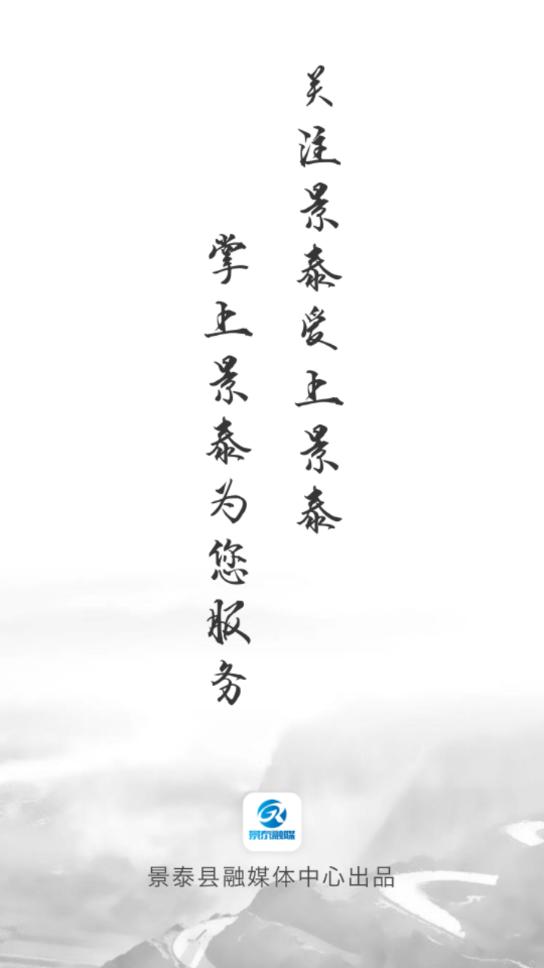 关注景泰爱上景泰
掌上景泰为您服务
景泰融媒
景泰县融媒体中心出品